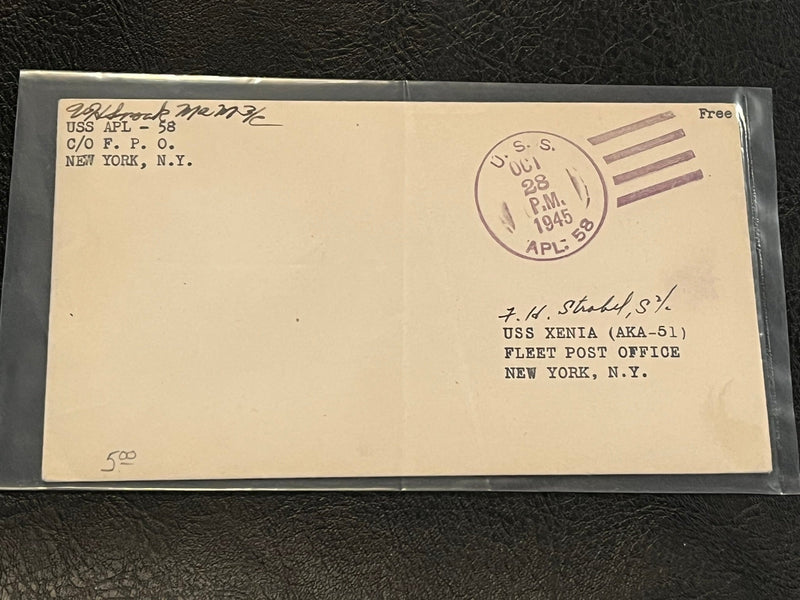 MaM 3/c
USS APL - 58
C/O F. P. O.
NEW YORK, N.Y.
Free
U. S. S.
OCT
28
P.M.
1945
APL: 58
F. H. Strobel, S 2/c
USS XENIA (AKA-51)
FLEET POST OFFICE
NEW YORK, N.Y.
5.00